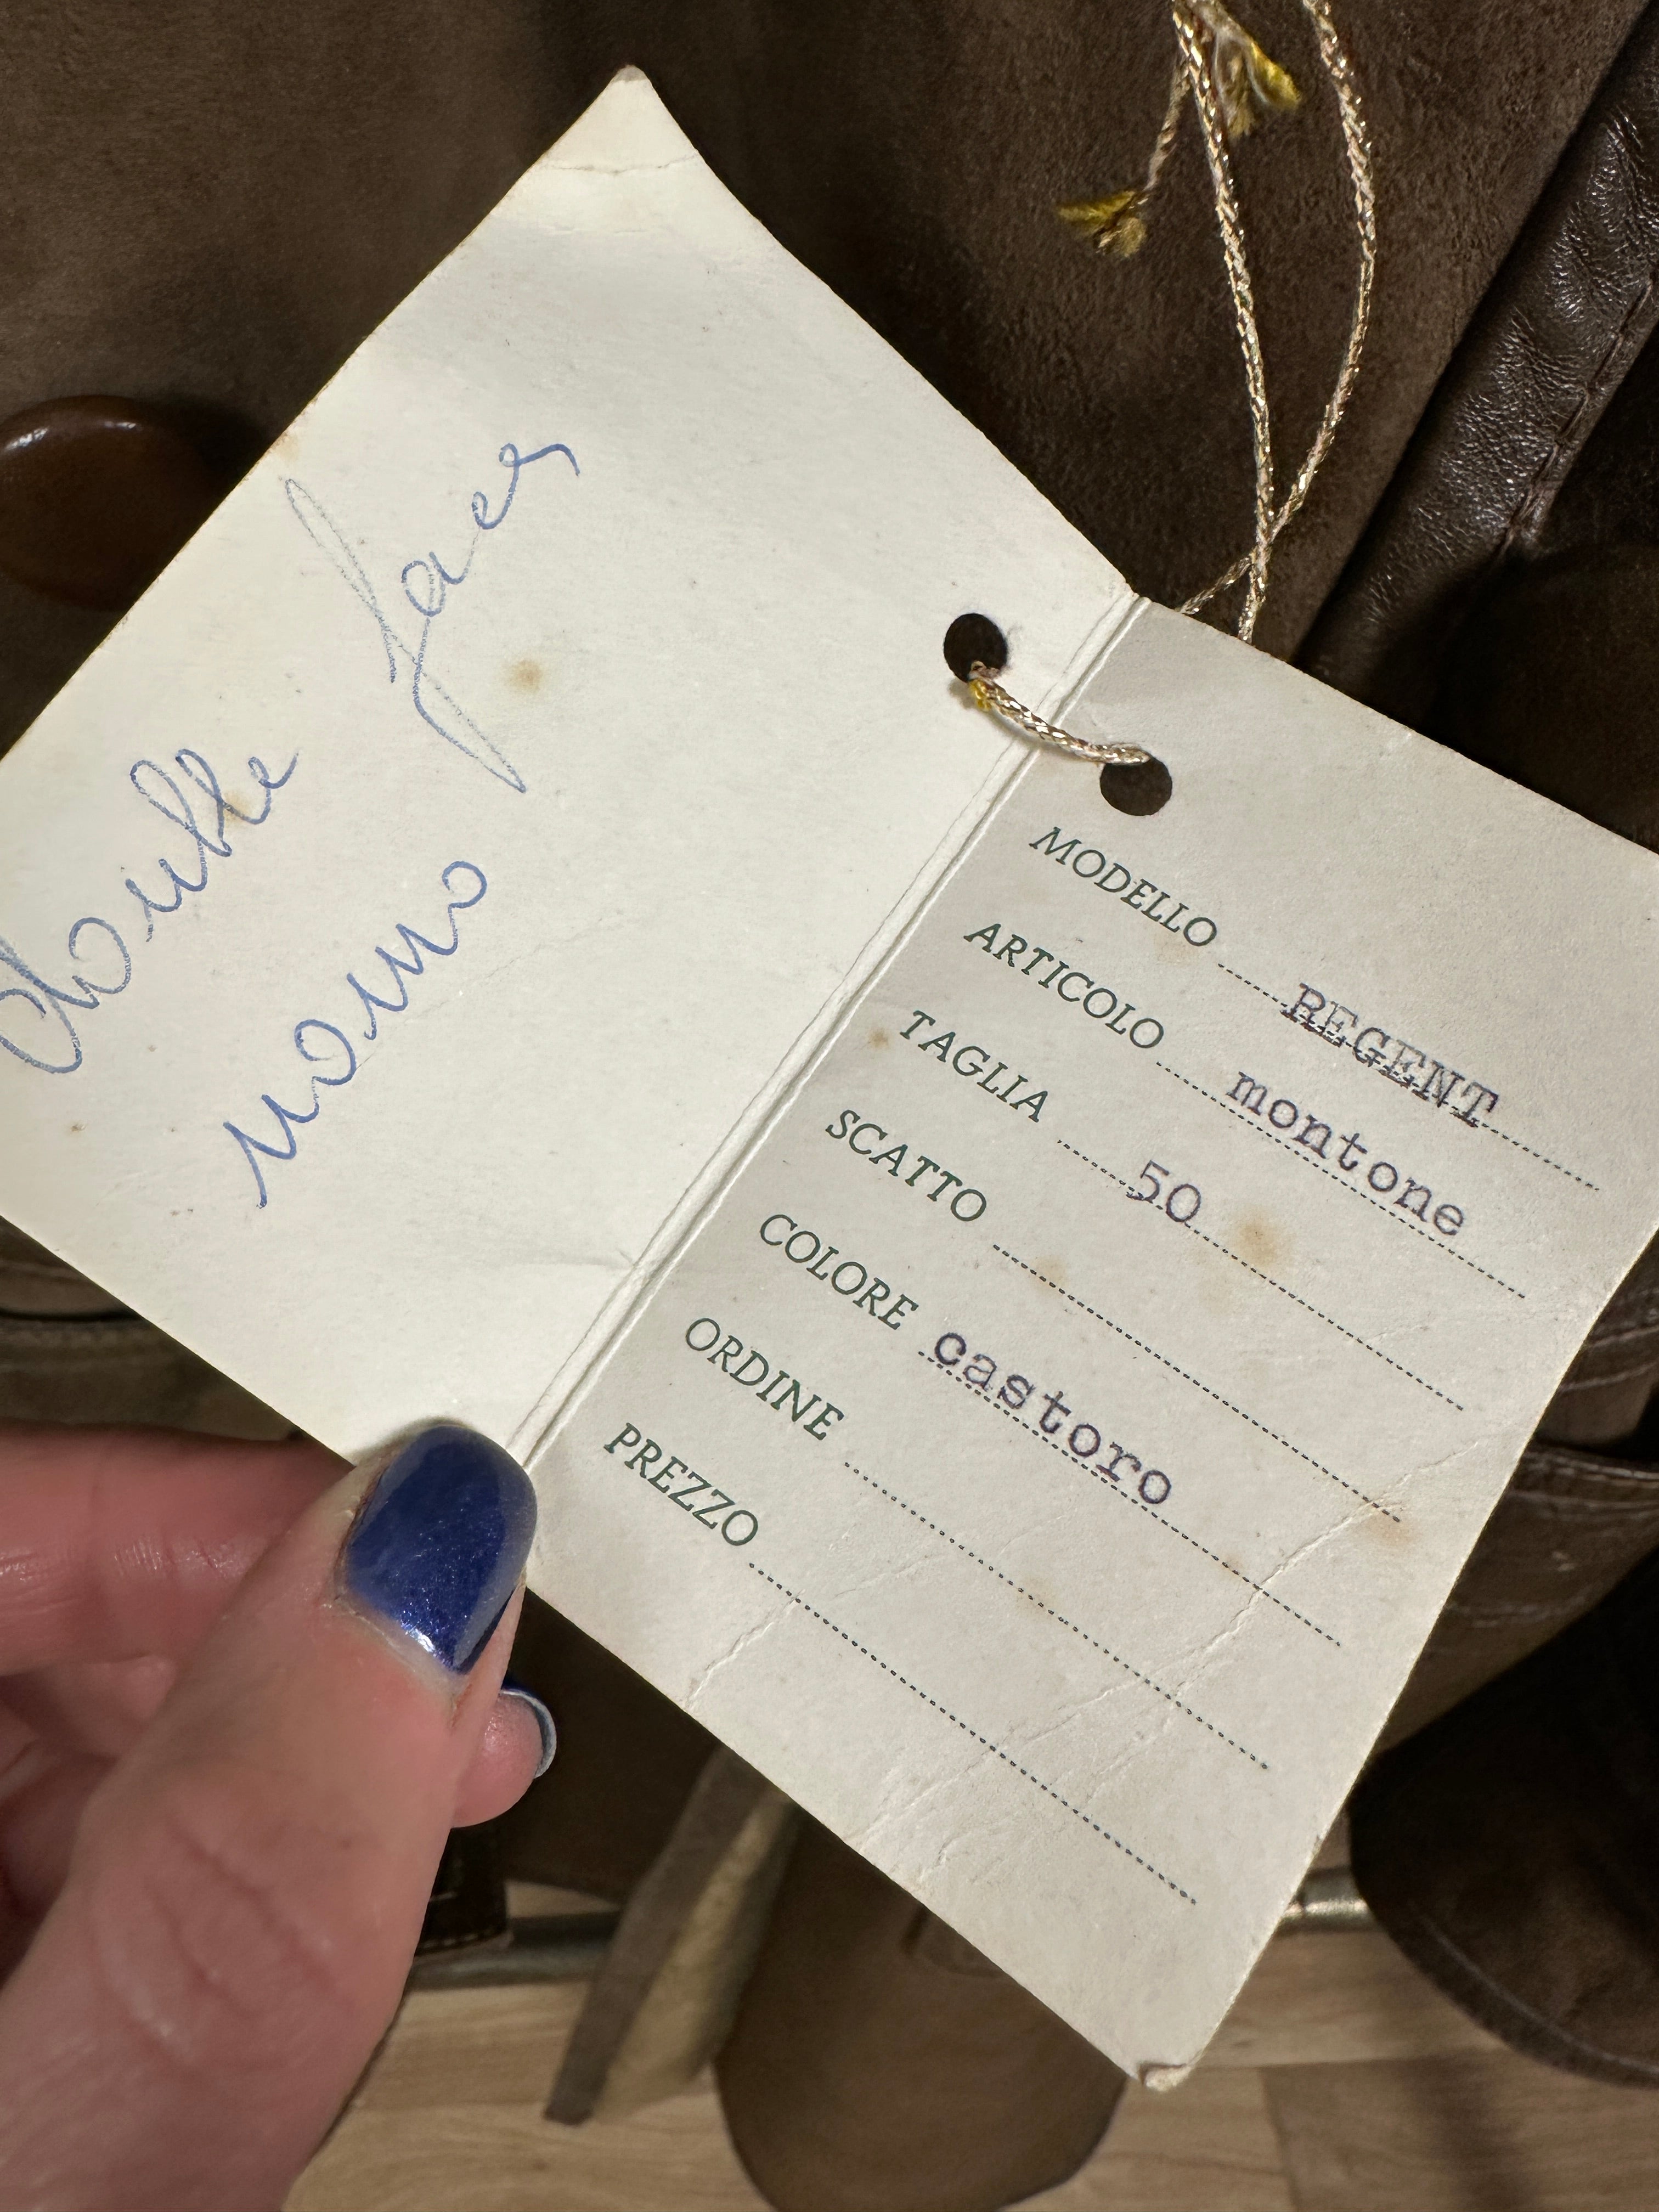 double faces
uomo
MODELLO REGENT
ARTICOLO montone
TAGLIA 50
SCATTO
COLORE castoro
ORDINE
PREZZO